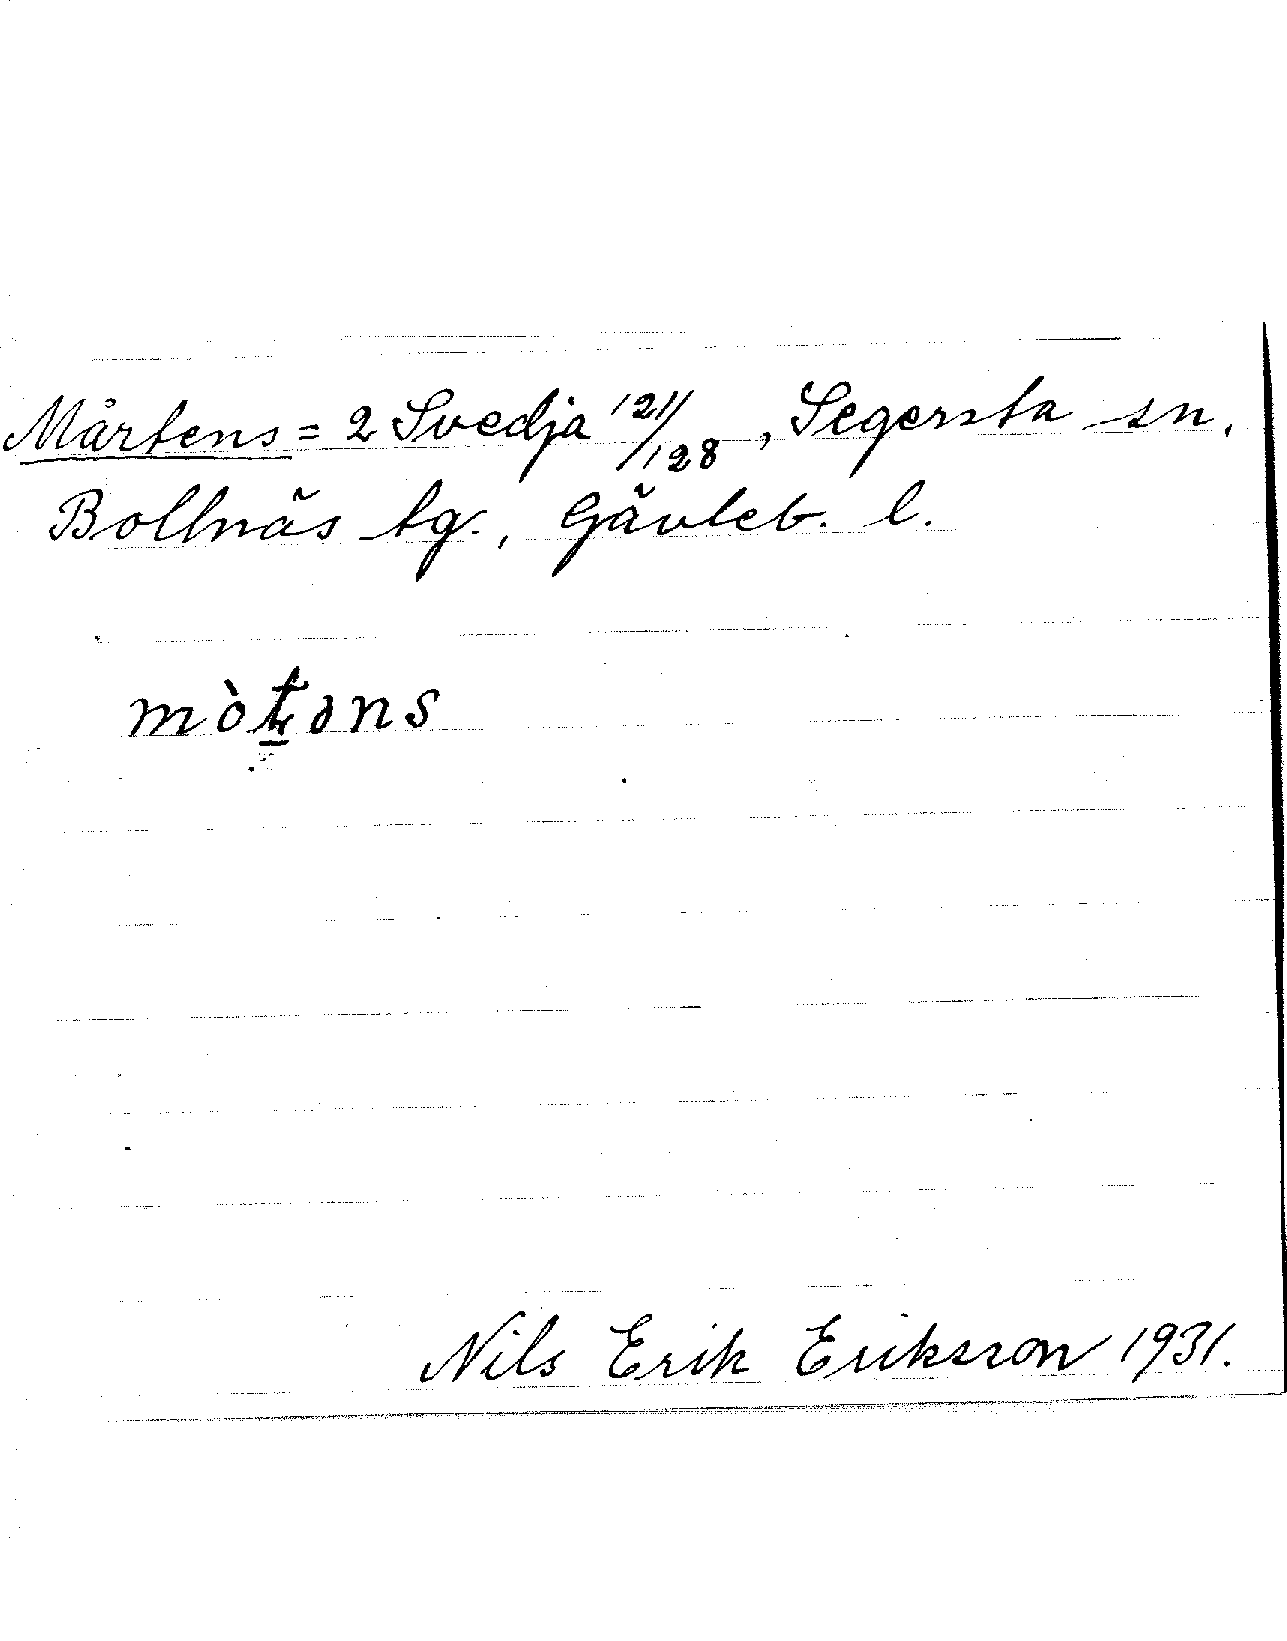 Mårtens = 2 Svedja 1211/128, Segersta sn,
Bollnäs tg., Gävleb. l.
mòʈəns
Nils Erik Eriksson 1931.